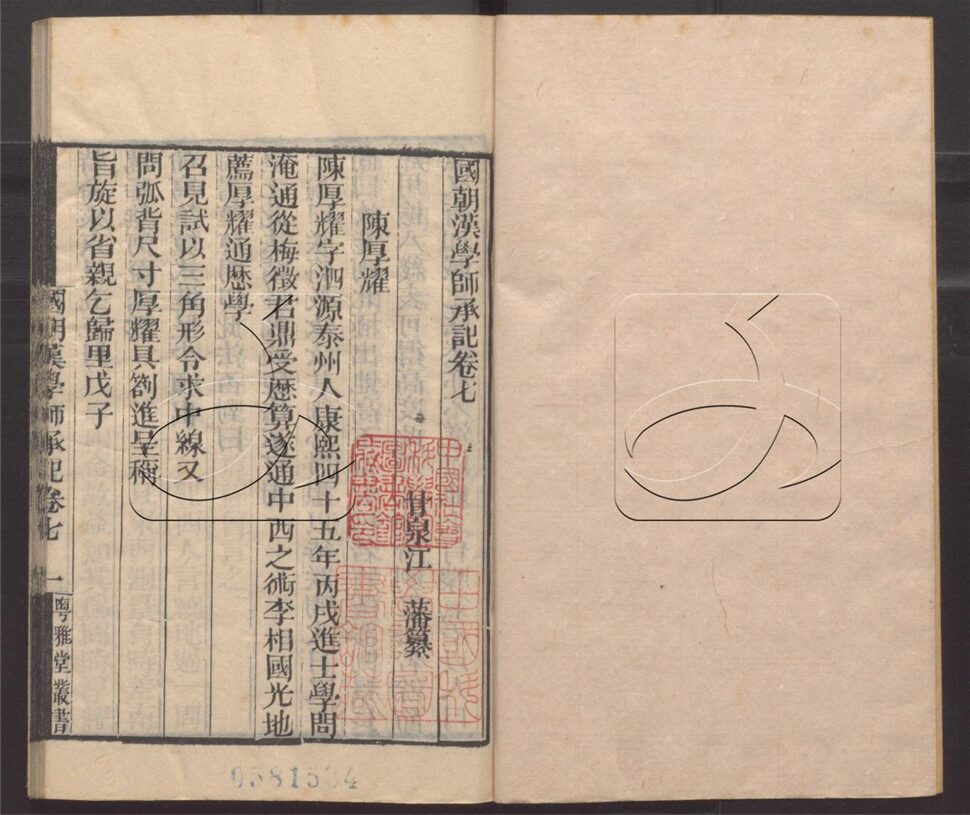 國朝漢學師承記卷七
甘泉江 藩纂
陳厚耀
陳厚耀字泗源泰州人康熙四十五年丙戌進士學問
淹通從梅徵君鼎受厯算遂通中西之術李相國光地
薦厚耀通厯學
召見試以三角形令求中線又
問弧背尺寸厚耀具劄進呈稱
旨旋以省親乞歸里戊子
國朝漢學師承記卷七
一
粤雅堂叢書
0581504